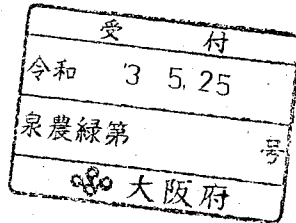 受付
令和 '3 5.25
泉農緑第 号
大阪府